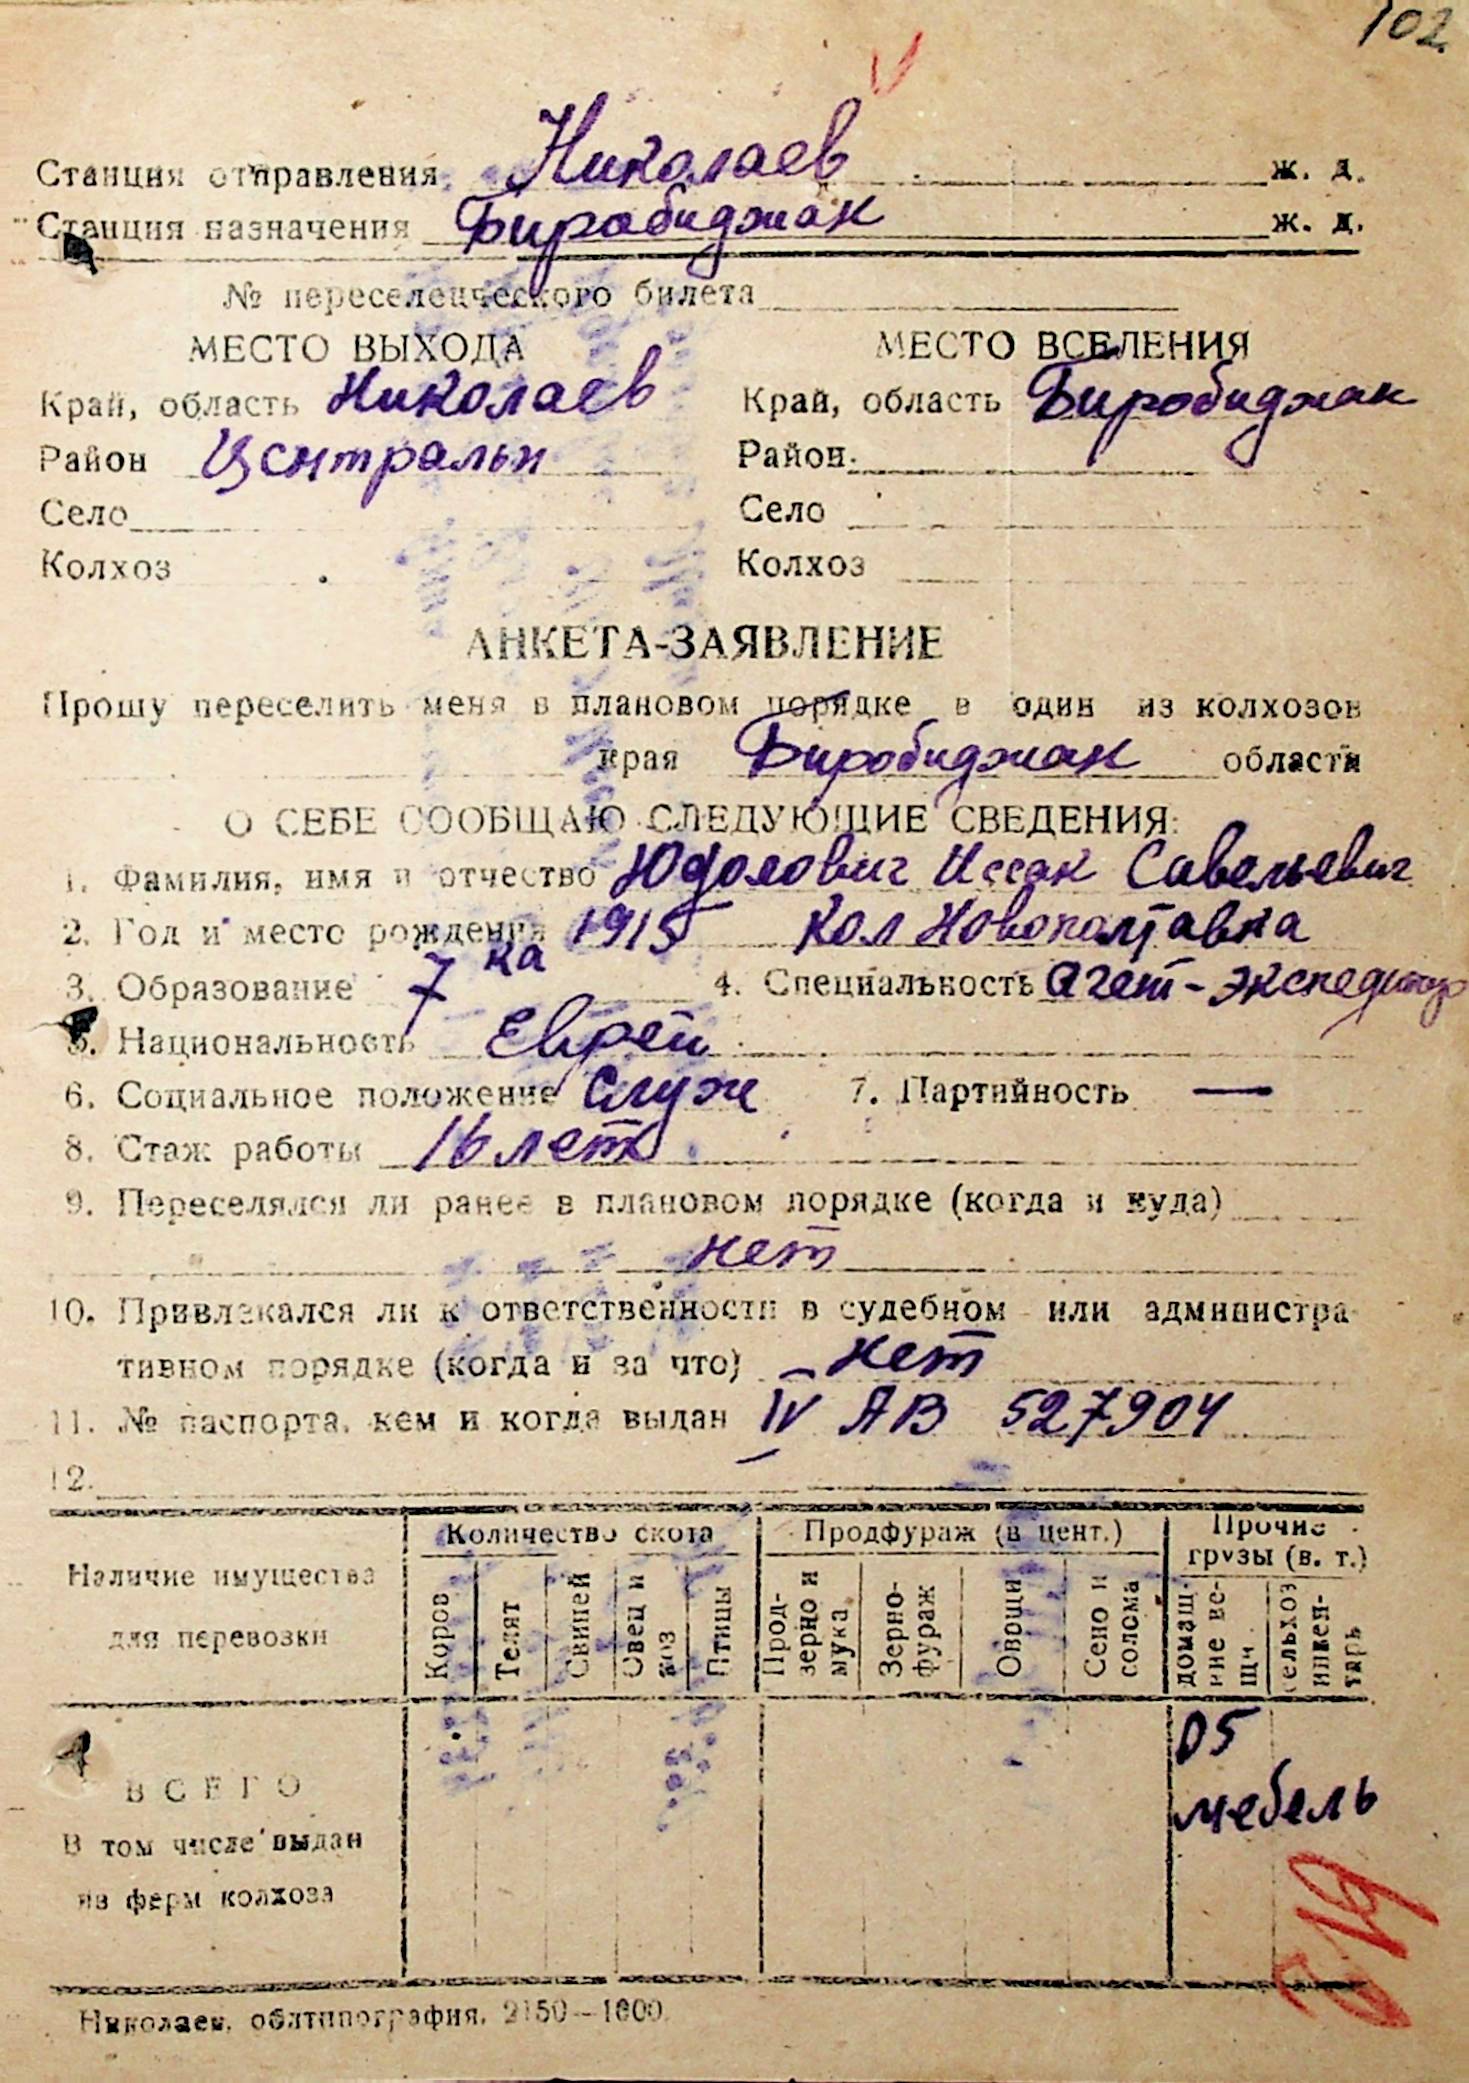 102
Станция отправления Николаев ж. д.
Станция назначения Биробиджан ж. д.
№ переселенческого билета
МЕСТО ВЫХОДА
Край, область Николаев
Район Центральн
Село
Колхоз
МЕСТО ВСЕЛЕНИЯ
Край, область Биробиджан
Район
Село
Колхоз
АНКЕТА-ЗАЯВЛЕНИЕ
Прошу переселить меня в плановом порядке в один из колхозов
края Биробиджан области
О СЕБЕ СООБЩАЮ СЛЕДУЮЩИЕ СВЕДЕНИЯ:
1. Фамилия, имя и отчество Юдолович Иссак Савельевич
2. Год и место рождения 1915 Кол Новополтавка
3. Образование 7 ка 4. Специальность агет-экспедитор
5. Национальность Еврей
6. Социальное положение Служ 7. Партийность —
8. Стаж работы 16 лет
9. Переселялся ли ранее в плановом порядке (когда и куда)
нет
10. Привлекался ли к ответственности в судебном или администра-
тивном порядке (когда и за что) нет
11. № паспорта, кем и когда выдан IV АВ 527904
12.
Наличие имущества
для перевозки
Количество скота
Коров
Телят
Свиней
Овец и
коз
Птицы
Продфураж (в цент.)
Прод-
зерно и
мука
Зерно-
фураж
Овощи
Сено и
солома
Прочие
грузы (в. т.)
домаш-
ние ве-
щи
сельхоз
инвен-
тарь
ВСЕГО
В том числе выдан
из ферм колхоза
05
мебель
Николаев, облтипография. 2150—1000.